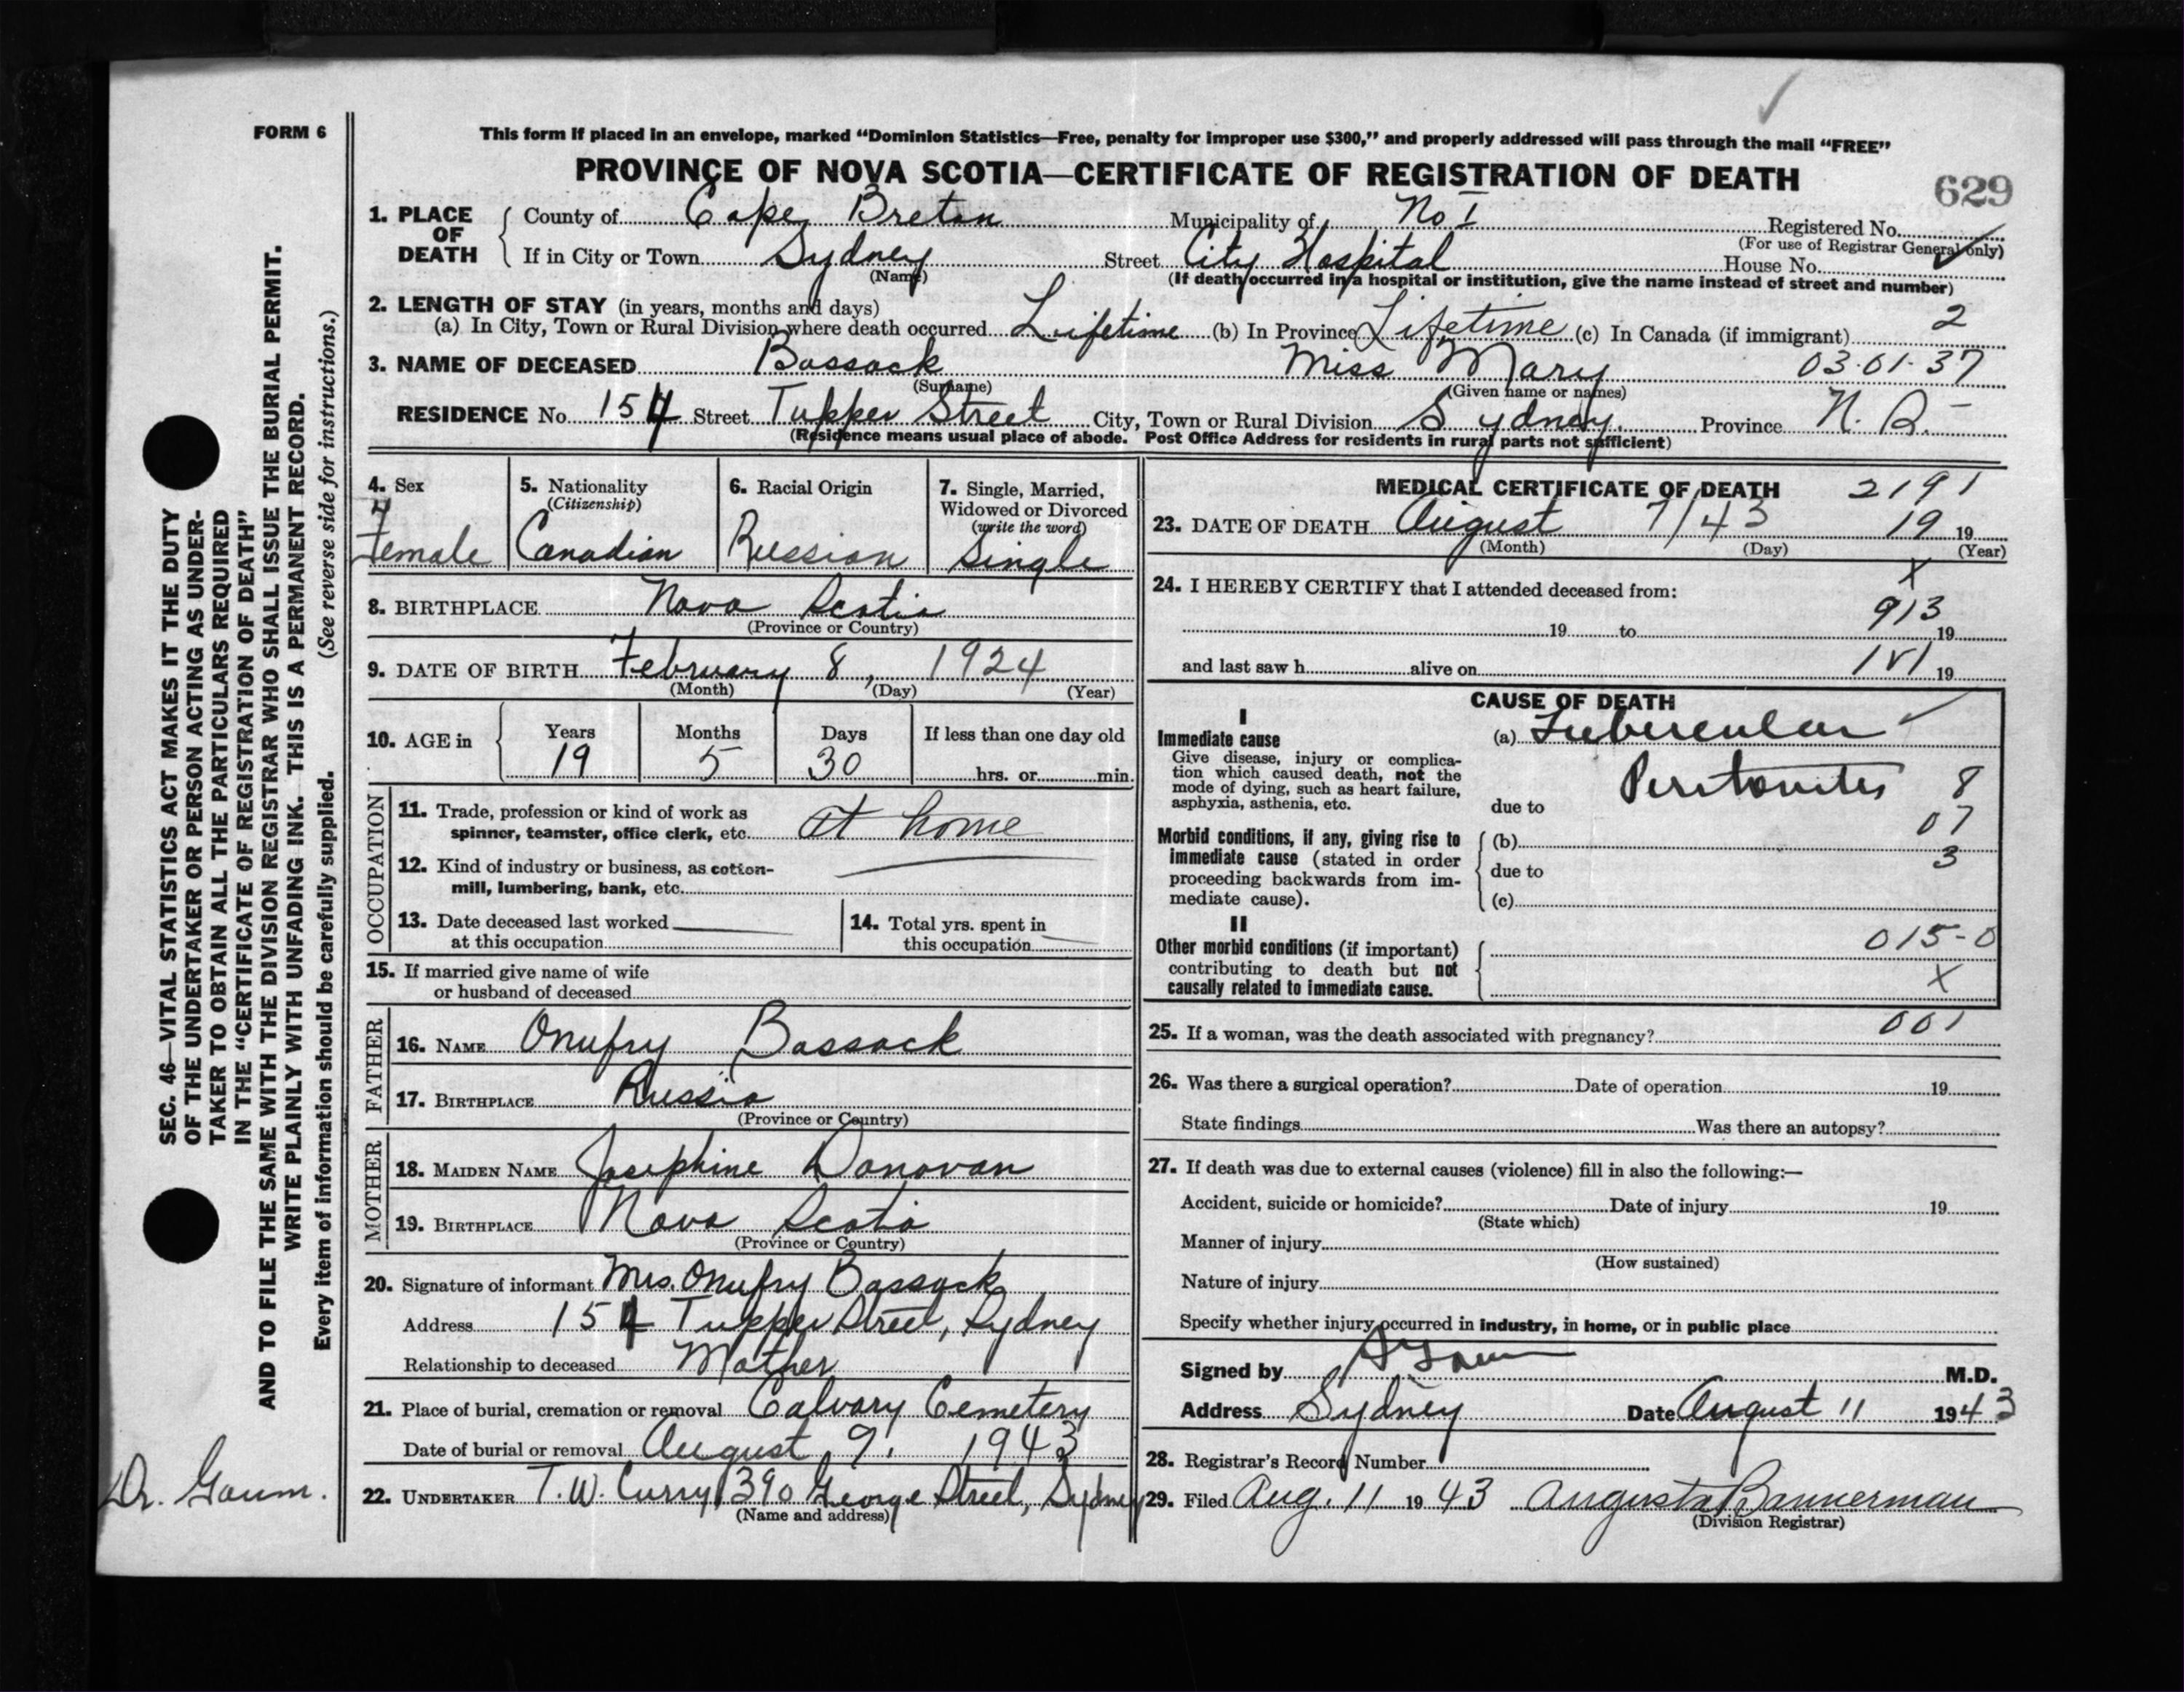 FORM 6
This form if placed in an envelope, marked “Dominion Statistics—Free, penalty for improper use $300,” and properly addressed will pass through the mail “FREE”
PROVINCE OF NOVA SCOTIA—CERTIFICATE OF REGISTRATION OF DEATH
629
1. PLACE OF DEATH
County of Cape Breton Municipality of No I Registered No.
(For use of Registrar General only)
If in City or Town Sydney Street City Hospital House No.
(Name) (If death occurred in a hospital or institution, give the name instead of street and number)
2. LENGTH OF STAY (in years, months and days)
(a) In City, Town or Rural Division where death occurred Lifetime (b) In Province Lifetime (c) In Canada (if immigrant) 2
3. NAME OF DECEASED Bassack Miss Mary 03-01-37
(Surname) (Given name or names)
RESIDENCE No. 154 Street Tupper Street City, Town or Rural Division Sydney. Province N.
(Residence means usual place of abode. Post Office Address for residents in rural parts not sufficient)
4. Sex Female
5. Nationality (Citizenship) Canadian
6. Racial Origin Russian
7. Single, Married, Widowed or Divorced (write the word) Single
8. BIRTHPLACE Nova Scotia
(Province or Country)
9. DATE OF BIRTH February 8, 1924
(Month) (Day) (Year)
10. AGE in Years Months Days If less than one day old
19 5 30 hrs. or min.
OCCUPATION
11. Trade, profession or kind of work as
spinner, teamster, office clerk, etc. At home
12. Kind of industry or business, as cotton-
mill, lumbering, bank, etc.
13. Date deceased last worked
at this occupation
14. Total yrs. spent in
this occupation
15. If married give name of wife
or husband of deceased
FATHER
16. NAME Onufry Bassack
17. BIRTHPLACE Russia
(Province or Country)
MOTHER
18. MAIDEN NAME Josephine Donovan
19. BIRTHPLACE Nova Scotia
(Province or Country)
20. Signature of informant Mrs. Onufry Bassack
Address 154 Tupper Street, Sydney
Relationship to deceased Mother
21. Place of burial, cremation or removal Calvary Cemetery
Date of burial or removal August 9, 1943
22. UNDERTAKER T. W. Curry 390 George Street, Sydney
(Name and address)
MEDICAL CERTIFICATE OF DEATH 2191
23. DATE OF DEATH August 7/43 19 19
(Month) (Day) (Year)
X
24. I HEREBY CERTIFY that I attended deceased from:
913
19 to 19
and last saw h alive on 19
CAUSE OF DEATH
I
Immediate cause
Give disease, injury or complica-
tion which caused death, not the
mode of dying, such as heart failure,
asphyxia, asthenia, etc.
(a) Tubercular
Peritonites 8
due to
07
Morbid conditions, if any, giving rise to
immediate cause (stated in order
proceeding backwards from im-
mediate cause).
(b)
3
due to
(c)
II
Other morbid conditions (if important)
contributing to death but not
causally related to immediate cause.
015-0
X
001
25. If a woman, was the death associated with pregnancy?
26. Was there a surgical operation? Date of operation 19
State findings Was there an autopsy?
27. If death was due to external causes (violence) fill in also the following:—
Accident, suicide or homicide? Date of injury 19
(State which)
Manner of injury
(How sustained)
Nature of injury
Specify whether injury occurred in industry, in home, or in public place
Signed by M.D.
Address Sydney Date August 11 1943
28. Registrar’s Record Number
29. Filed Aug. 11 1943 Augusta Bannerman
(Division Registrar)
SEC. 46—VITAL STATISTICS ACT MAKES IT THE DUTY
OF THE UNDERTAKER OR PERSON ACTING AS UNDER-
TAKER TO OBTAIN ALL THE PARTICULARS REQUIRED
IN THE “CERTIFICATE OF REGISTRATION OF DEATH”
AND TO FILE THE SAME WITH THE DIVISION REGISTRAR WHO SHALL ISSUE THE BURIAL PERMIT.
WRITE PLAINLY WITH UNFADING INK. THIS IS A PERMANENT RECORD.
Every item of information should be carefully supplied. (See reverse side for instructions.)
Dr. Gaum.